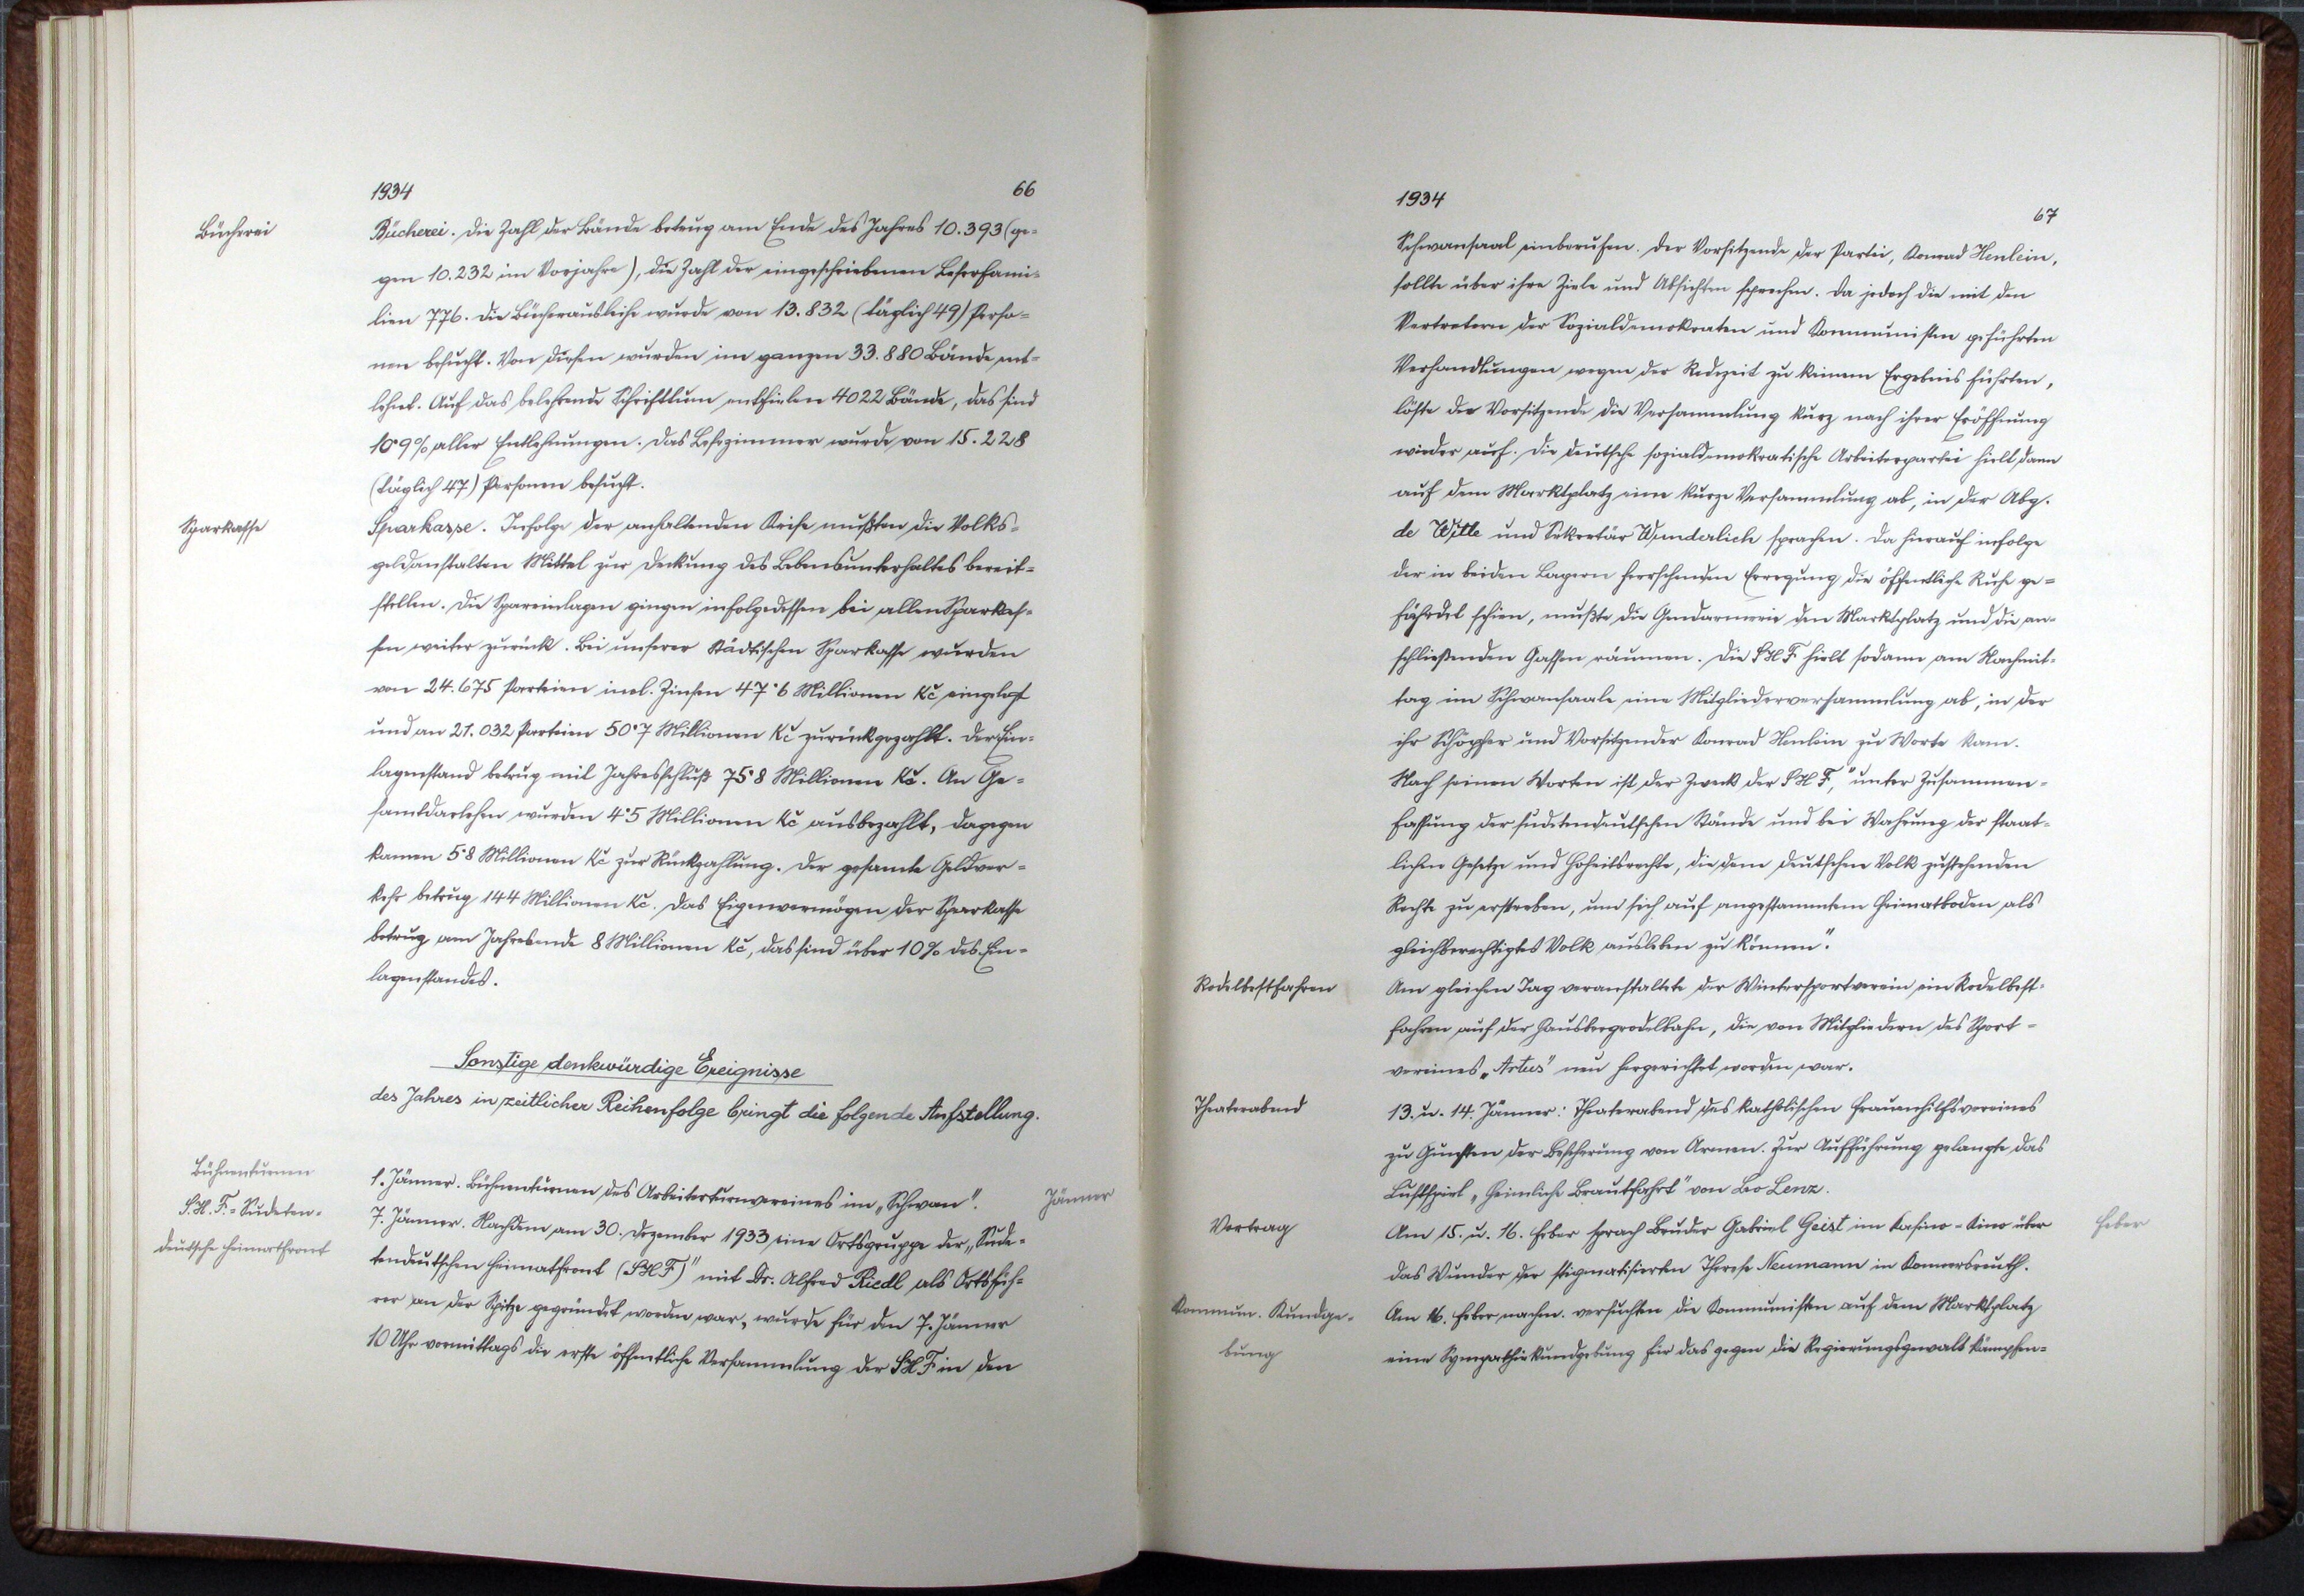 1934
66
Bücherei
Bücherei. Die Zahl der Bände betrug am Ende des Jahres 10.393 (ge-
gen 10.232 im Vorjahre), die Zahl der eingeschriebenen Leserfami-
lien 776. Die Bücherausleihe wurde von 13.832 (täglich 49) Perso-
nen besucht. Von diesen wurden im ganzen 33.880 Bände ent-
lehnt. Auf das belehrende Schrifttum entfielen 4022 Bände, das sind
10·9% aller Entlehnungen. Das Lesezimmer wurde von 15.228
(täglich 47) Personen besucht.
Sparkasse
Sparkasse. Infolge der anhaltenden Krise mußten die Volks-
geldanstalten Mittel zur Deckung des Lebensunterhaltes bereit-
stellen. Die Spareinlagen gingen infolgedessen bei allen Sparkas-
sen weiter zurück. Bei unserer städtischen Sparkasse wurden
von 24.675 Parteien incl. Zinsen 47·6 Millionen Kč eingelegt
und an 21.032 Parteien 50·7 Millionen Kč zurückgezahlt. Der Ein-
lagenstand betrug mit Jahresschluß 75·8 Millionen Kč. An Ge-
samtdarlehen wurden 4·5 Millionen Kč ausbezahlt, dagegen
kamen 5·8 Millionen Kč zur Rückzahlung. Der gesamte Geldver-
kehr betrug 144 Millionen Kč. Das Eigenvermögen der Sparkasse
betrug am Jahresende 8 Millionen Kč, das sind über 10% des Ein-
lagenstandes.
Sonstige denkwürdige Ereignisse
des Jahres in zeitlicher Reihenfolge bringt die folgende Aufstellung.
Bühnenturnen
1. Jänner. Bühnenturnen des Arbeiterturnvereines im „Schwan".
Jänner
S.H.F. = Sudeten-
deutsche Heimatfront
7. Jänner. Nachdem am 30. Dezember 1933 eine Ortsgruppe der „Sude-
tendeutschen Heimatfront (SHF)" mit Dr. Alfred Riedl als Ortsfüh-
rer an der Spitze gegründet worden war, wurde für den 7. Jänner
10 Uhr vormittags die erste öffentliche Versammlung der SHF in den
1934
67
Schwansaal einberufen. Der Vorsitzende der Partei, Konrad Henlein,
sollte über ihre Ziele und Absichten sprechen. Da jedoch die mit den
Vertretern der Sozialdemokraten und Kommunisten geführten
Verhandlungen wegen der Redezeit zu keinem Ergebnis führten,
löste der Vorsitzende die Versammlung kurz nach ihrer Eröffnung
wieder auf. Die deutsche sozialdemokratische Arbeiterpartei hielt dann
auf dem Marktplatz eine kurze Versammlung ab, in der Abg.
de Witte und Sekretär Wunderlich sprachen. Da hierauf infolge
der in beiden Lagern herrschenden Erregung die öffentliche Ruhe ge-
fährdet schien, mußte die Gendarmerie den Marktplatz und die an-
schließenden Gassen räumen. Die SHF hielt sodann am Nachmit-
tag im Schwansaale eine Mitgliederversammlung ab, in der
ihr Schöpfer und Vorsitzender Konrad Henlein zu Worte kam.
Nach seinen Worten ist der Zweck der SHF, „unter Zusammen-
fassung der sudetendeutschen Stände und bei Wahrung der staat-
lichen Gesetze und Hoheitsrechte, die dem deutschen Volk zustehenden
Rechte zu erstreben, um sich auf angestammtem Heimatboden als
gleichberechtigtes Volk ausleben zu können".
Rodelbestfahren
Am gleichen Tag veranstaltete der Wintersportverein ein Rodelbest-
fahren auf der Hausbergrodelbahn, die von Mitgliedern des Sport-
vereines „Artus" neu hergerichtet worden war.
Theaterabend
13. u. 14. Jänner: Theaterabend des katholischen Frauenhilfsvereines
zu Gunsten der Bescherung von Armen. Zur Aufführung gelangte das
Lustspiel „Heimliche Brautfahrt" von Leo Lenz.
Vortrag
Am 15. u. 16. Feber sprach Bruder Gabriel Geist im Kasino-Kino über
Feber
das Wunder der stigmatisierten Therese Neumann in Konnersreuth.
Kommun. Kundge-
bung
Am 16. Feber nachm. versuchten die Kommunisten auf dem Marktplatz
eine Sympathiekundgebung für das gegen die Regierungsgewalt kämpfen-